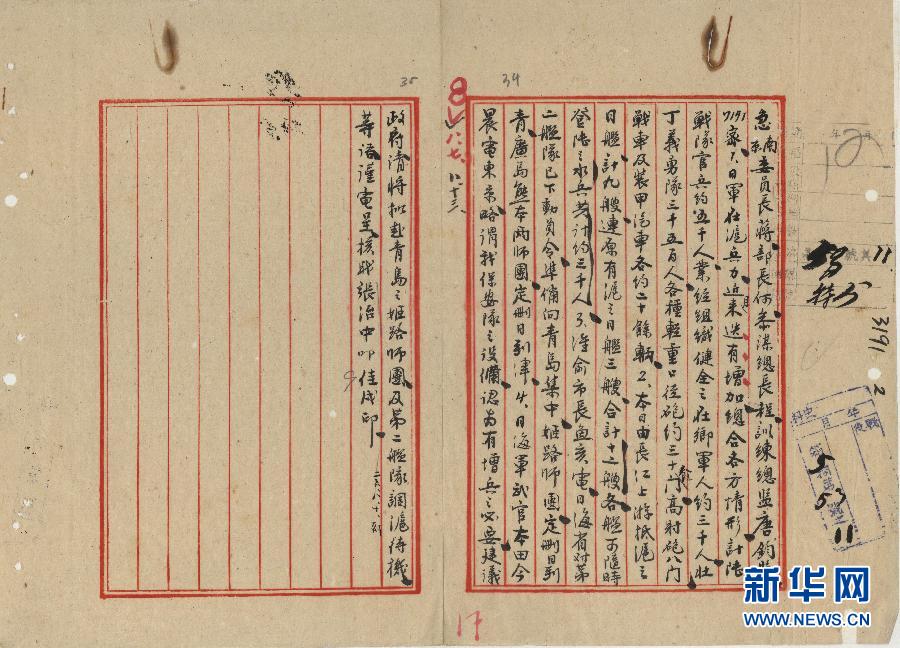 急南京委員長蔣部長何參謀總長程訓練總監唐鈞鑒
7191密1、日軍在滬兵力近來迭有增加總合各方情形計陸
戰隊官兵約五千人業經組織健全之在鄉軍人約三千人壯
丁義勇隊三千五百人各種輕重口徑砲約三十門高射砲八門
戰車及裝甲汽車各約二十餘輛2、本日由長江上游抵滬之
日艦計九艘連原有滬之日艦三艘合計十二艘各艦可隨時
登陸之水兵共計約三千人3、准俞市長魚亥電日海省對第
二艦隊已下動員令準備向青島集中姬路師團定刪日到
青廣島熊本兩師團定刪日到津4、日海軍武官本田今
晨電東京略謂我保安隊之設備認為有增兵之必要建議
政府請將擬赴青島之姬路師團及第二艦隊調滬待機
等語謹電呈核職張治中叩佳戌印
34
35
8
八、七、八十三
17
11
3191
2
5
53
11
新华网
WWW.NEWS.CN